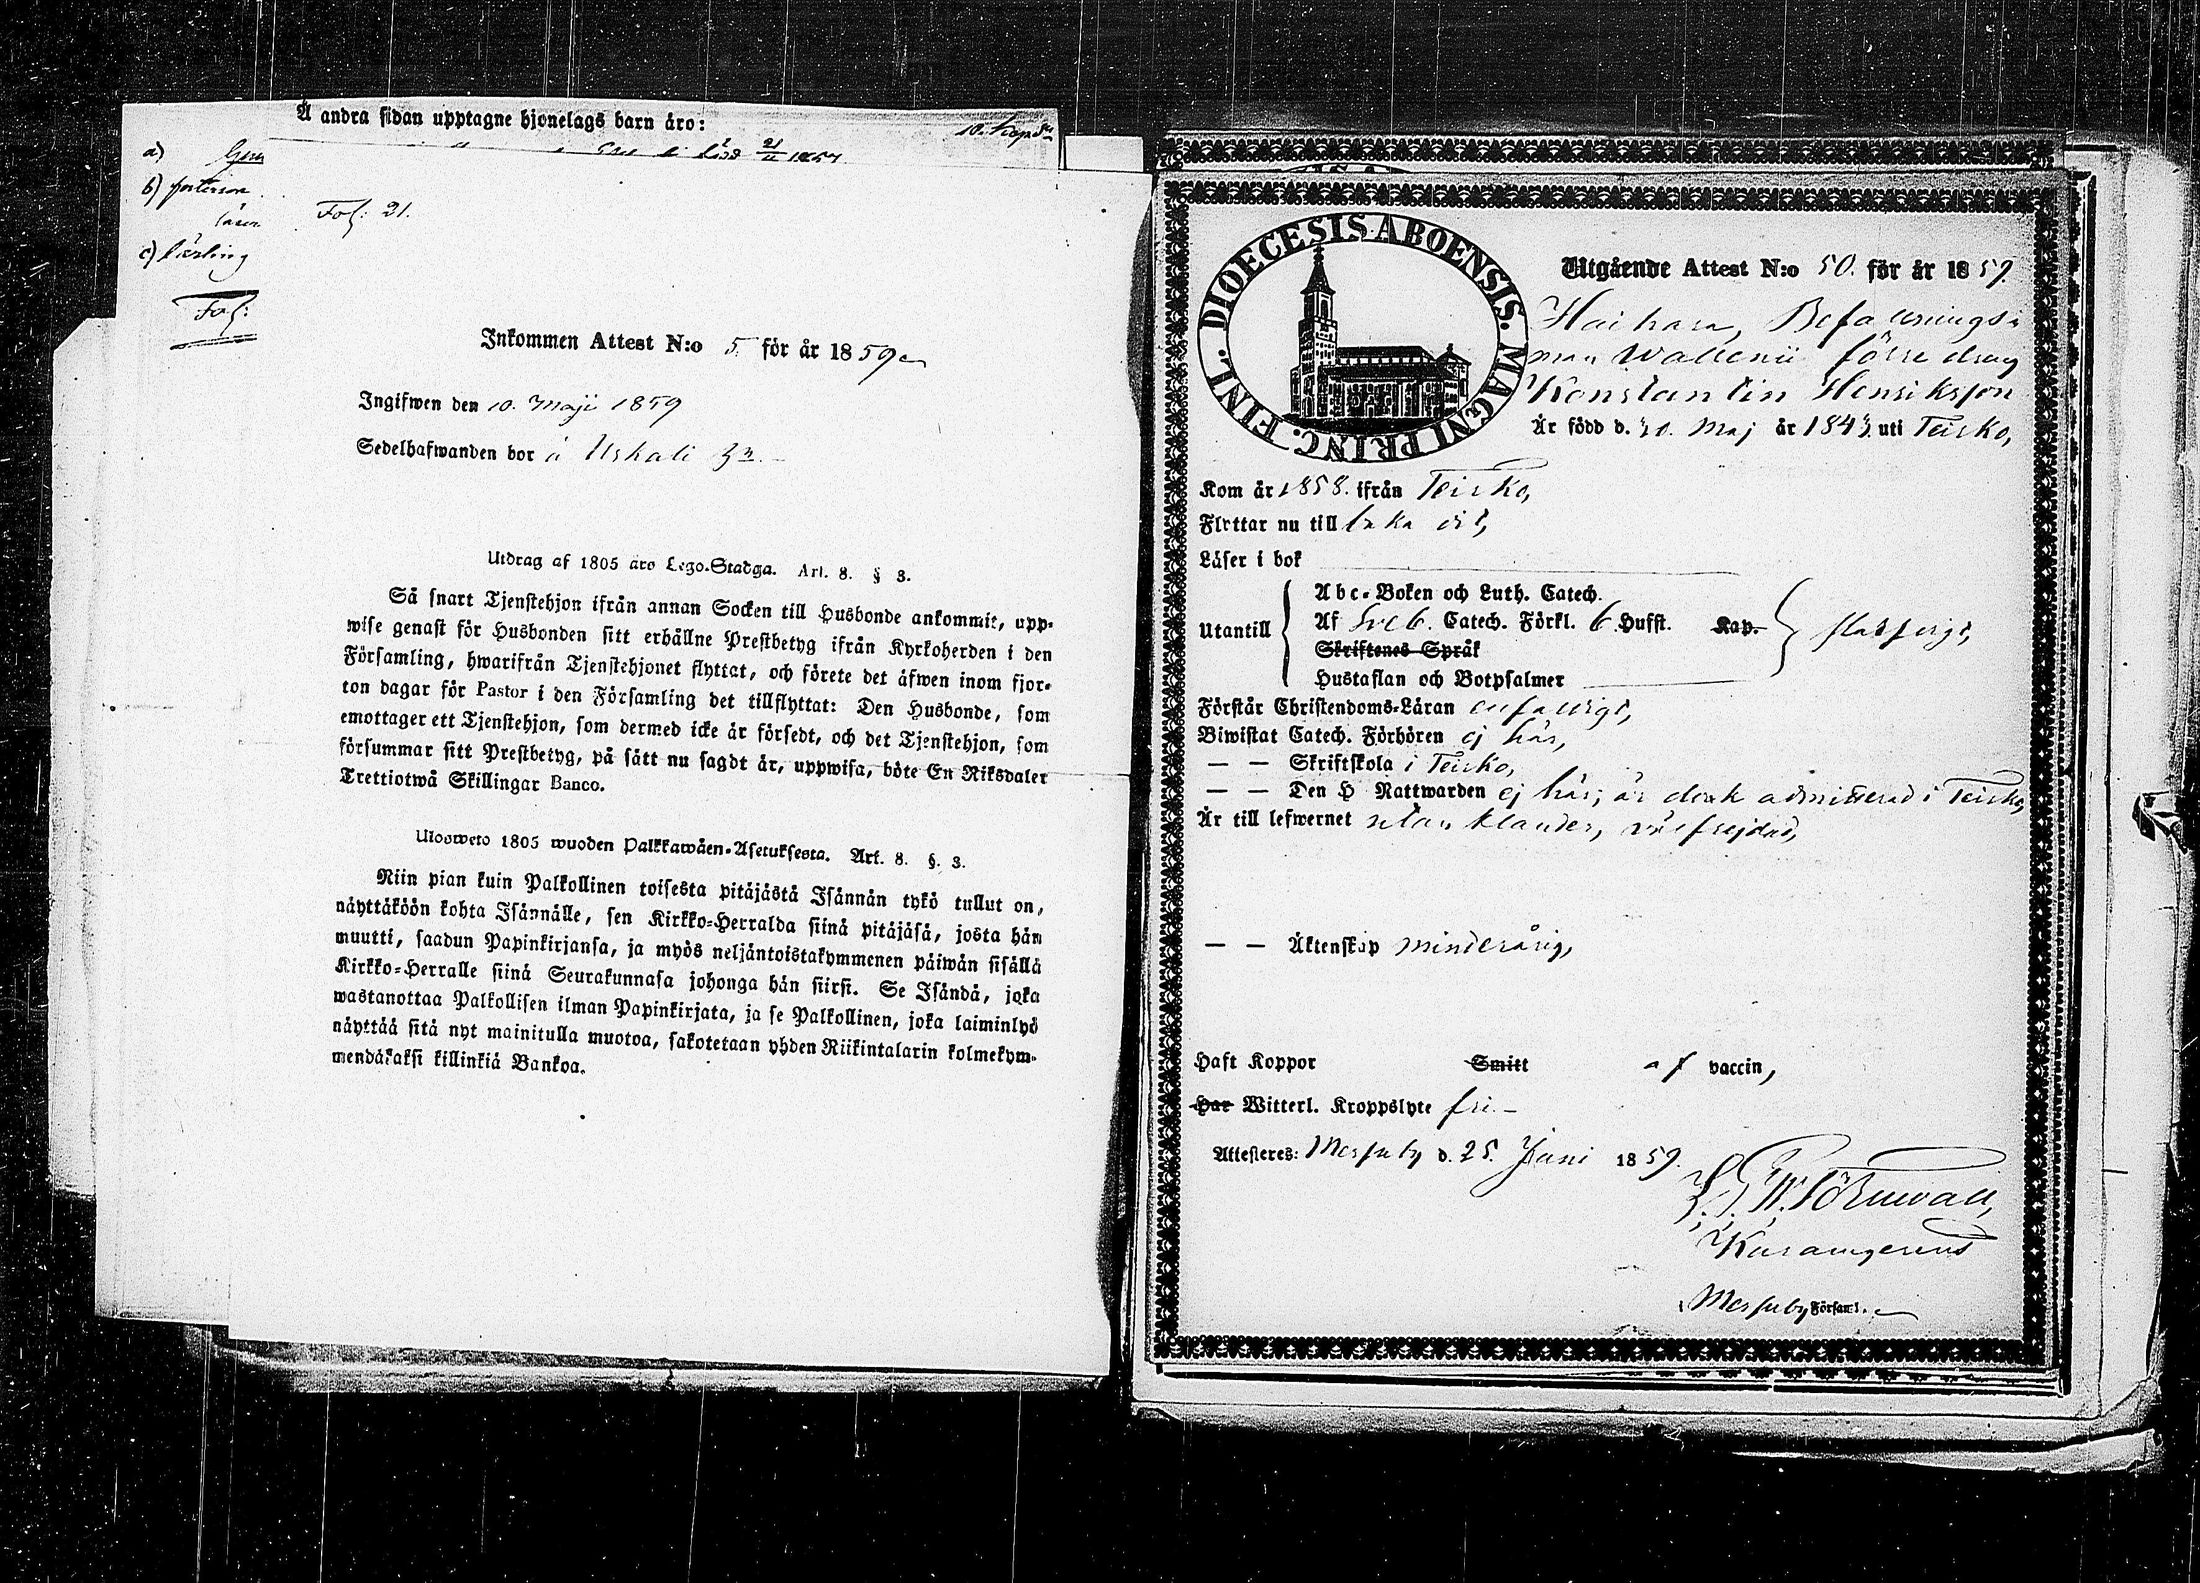 Å andra sidan upptagne hjonelags barn äro:
10. Kap
a)
född 21/11 1857
b)
c) Lärling
Fol:
Fol: 21.
Inkommen Attest N:o 5. för år 1859
Ingifwen den 10. Maji 1859
Sedelhafwanden bor å Uskali
Utdrag af 1805 års Lego-Stadga. Art. 8. § 3.
Så snart Tjenstehjon ifrån annan Socken till Husbonde ankommit, upp-
wise genast för Husbonden sitt erhållne Prestbetyg ifrån Kyrkoherden i den
Församling, hwarifrån Tjenstehjonet flyttat, och förete det äfwen inom fjor-
ton dagar för Pastor i den Församling det tillflyttat: Den Husbonde, som
emottager ett Tjenstehjon, som dermed icke är försedt, och det Tjenstehjon, som
försummar sitt Prestbetyg, på sätt nu sagdt är, uppwisa, böte En Riksdaler
Trettiotwå Skillingar Banco.
Ulosweto 1805 wuoden Palkkawäen-Asetuksesta. Art. 8. §. 3.
Niin pian kuin Palkollinen toisesta pitäjästä Isännän tykö tullut on,
näyttäköön kohta Isännälle, sen Kirkko-Herralda siinä pitäjäsä, josta hän
muutti, saadun Papinkirjansa, ja myös neljäntoistakymmenen päiwän sisällä
Kirkko-Herralle siinä Seurakunnasa johonga hän siirsi. Se Isändä, joka
wastanottaa Palkollisen ilman Papinkirjata, ja se Palkollinen, joka laiminlyö
näyttää sitä nyt mainitulla muotoa, sakotetaan yhden Riikintalarin kolmekym-
mendäkaksi killinkiä Bankoa.
DIOECESIS ABOENSIS. MAGNI PRINC. FINL.
Utgående Attest N:o 50. för år 1859.
Haihara, Befallnings-
man Wallenii förre dreng
Konstantin Henriksson
Är född d. 20. Maj år 1843. uti Teisko,
Kom år 1858. ifrån Teisko,
Flyttar nu till baka dit,
Läser i bok
Utantill
Abc-Boken och Luth. Catech.
Af Sveb. Catech. Förkl. 6 Hufst. Kap.
Skriftenes Språk
Hustaflan och Botpsalmer
Förstår Christendoms-Läran enfaldigt,
Biwistat Catech. Förhören ej här,
— — Skriftskola i Teisko,
— — Den H Nattwarden ej här; är dock admitterad i Teisko,
Är till lefwernet utan klander, välfrejdad,
— — Äktenskap minderårig,
Haft Koppor Smitt af vaccin,
Har Witterl. Kroppslyte fri. —
Attesteres: Messuby d. 25. Juni 1859.
Messuby Församl.